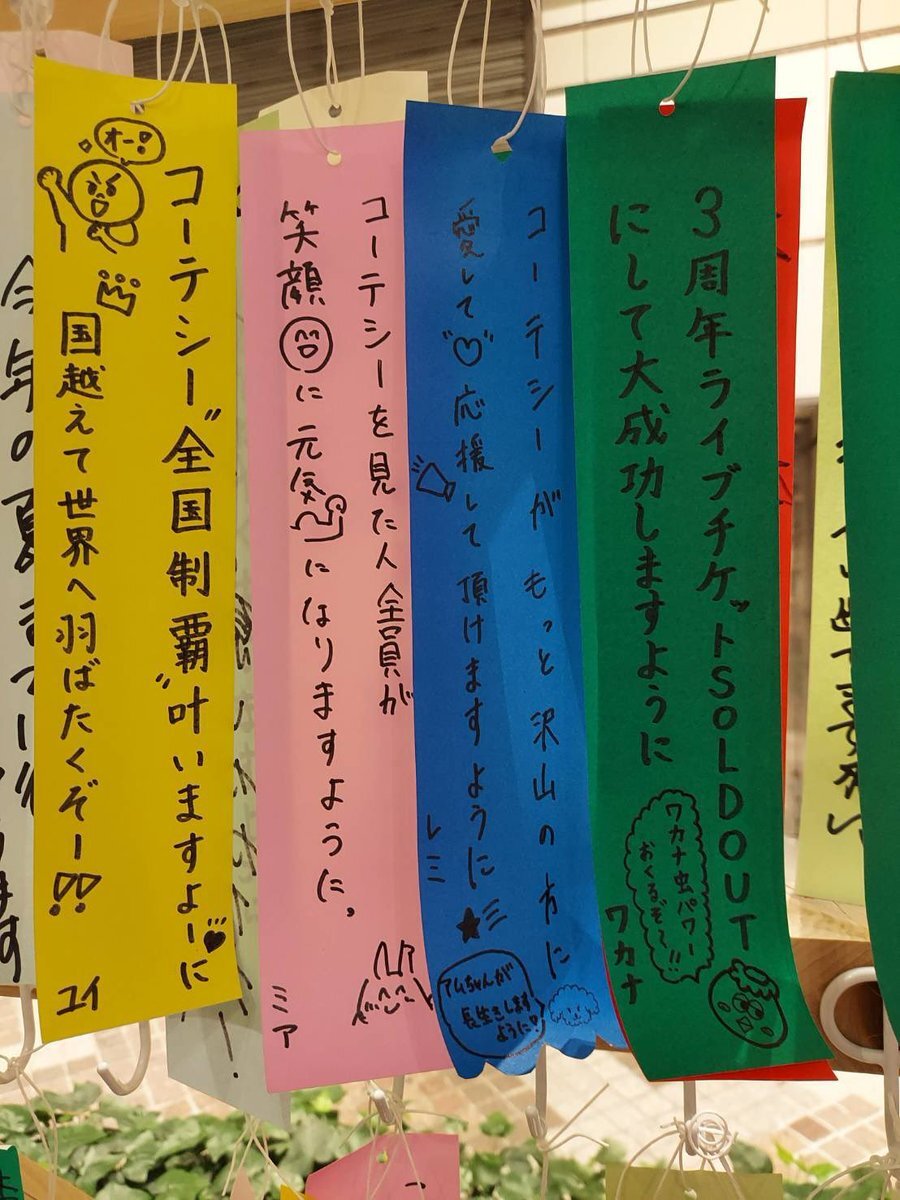 オー!
コーテシー"全国制覇"叶いますよーに
国越えて世界へ羽ばたくぞー!!
ユイ
コーテシーを見た人全員が
笑顔に元気になりますように。
ミア
コーテシーがもっと沢山の方に
愛して応援して頂けますように
レミ
アムちゃんが
長生きします
ように!
3周年ライブチケットSOLDOUT
にして大成功しますように
ワカナ虫パワー
おくるぞ〜!!
ワカナ
今年の夏